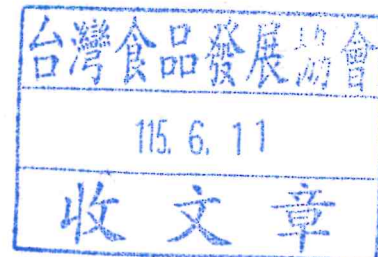 台灣食品發展協會
115. 6. 11
收文章